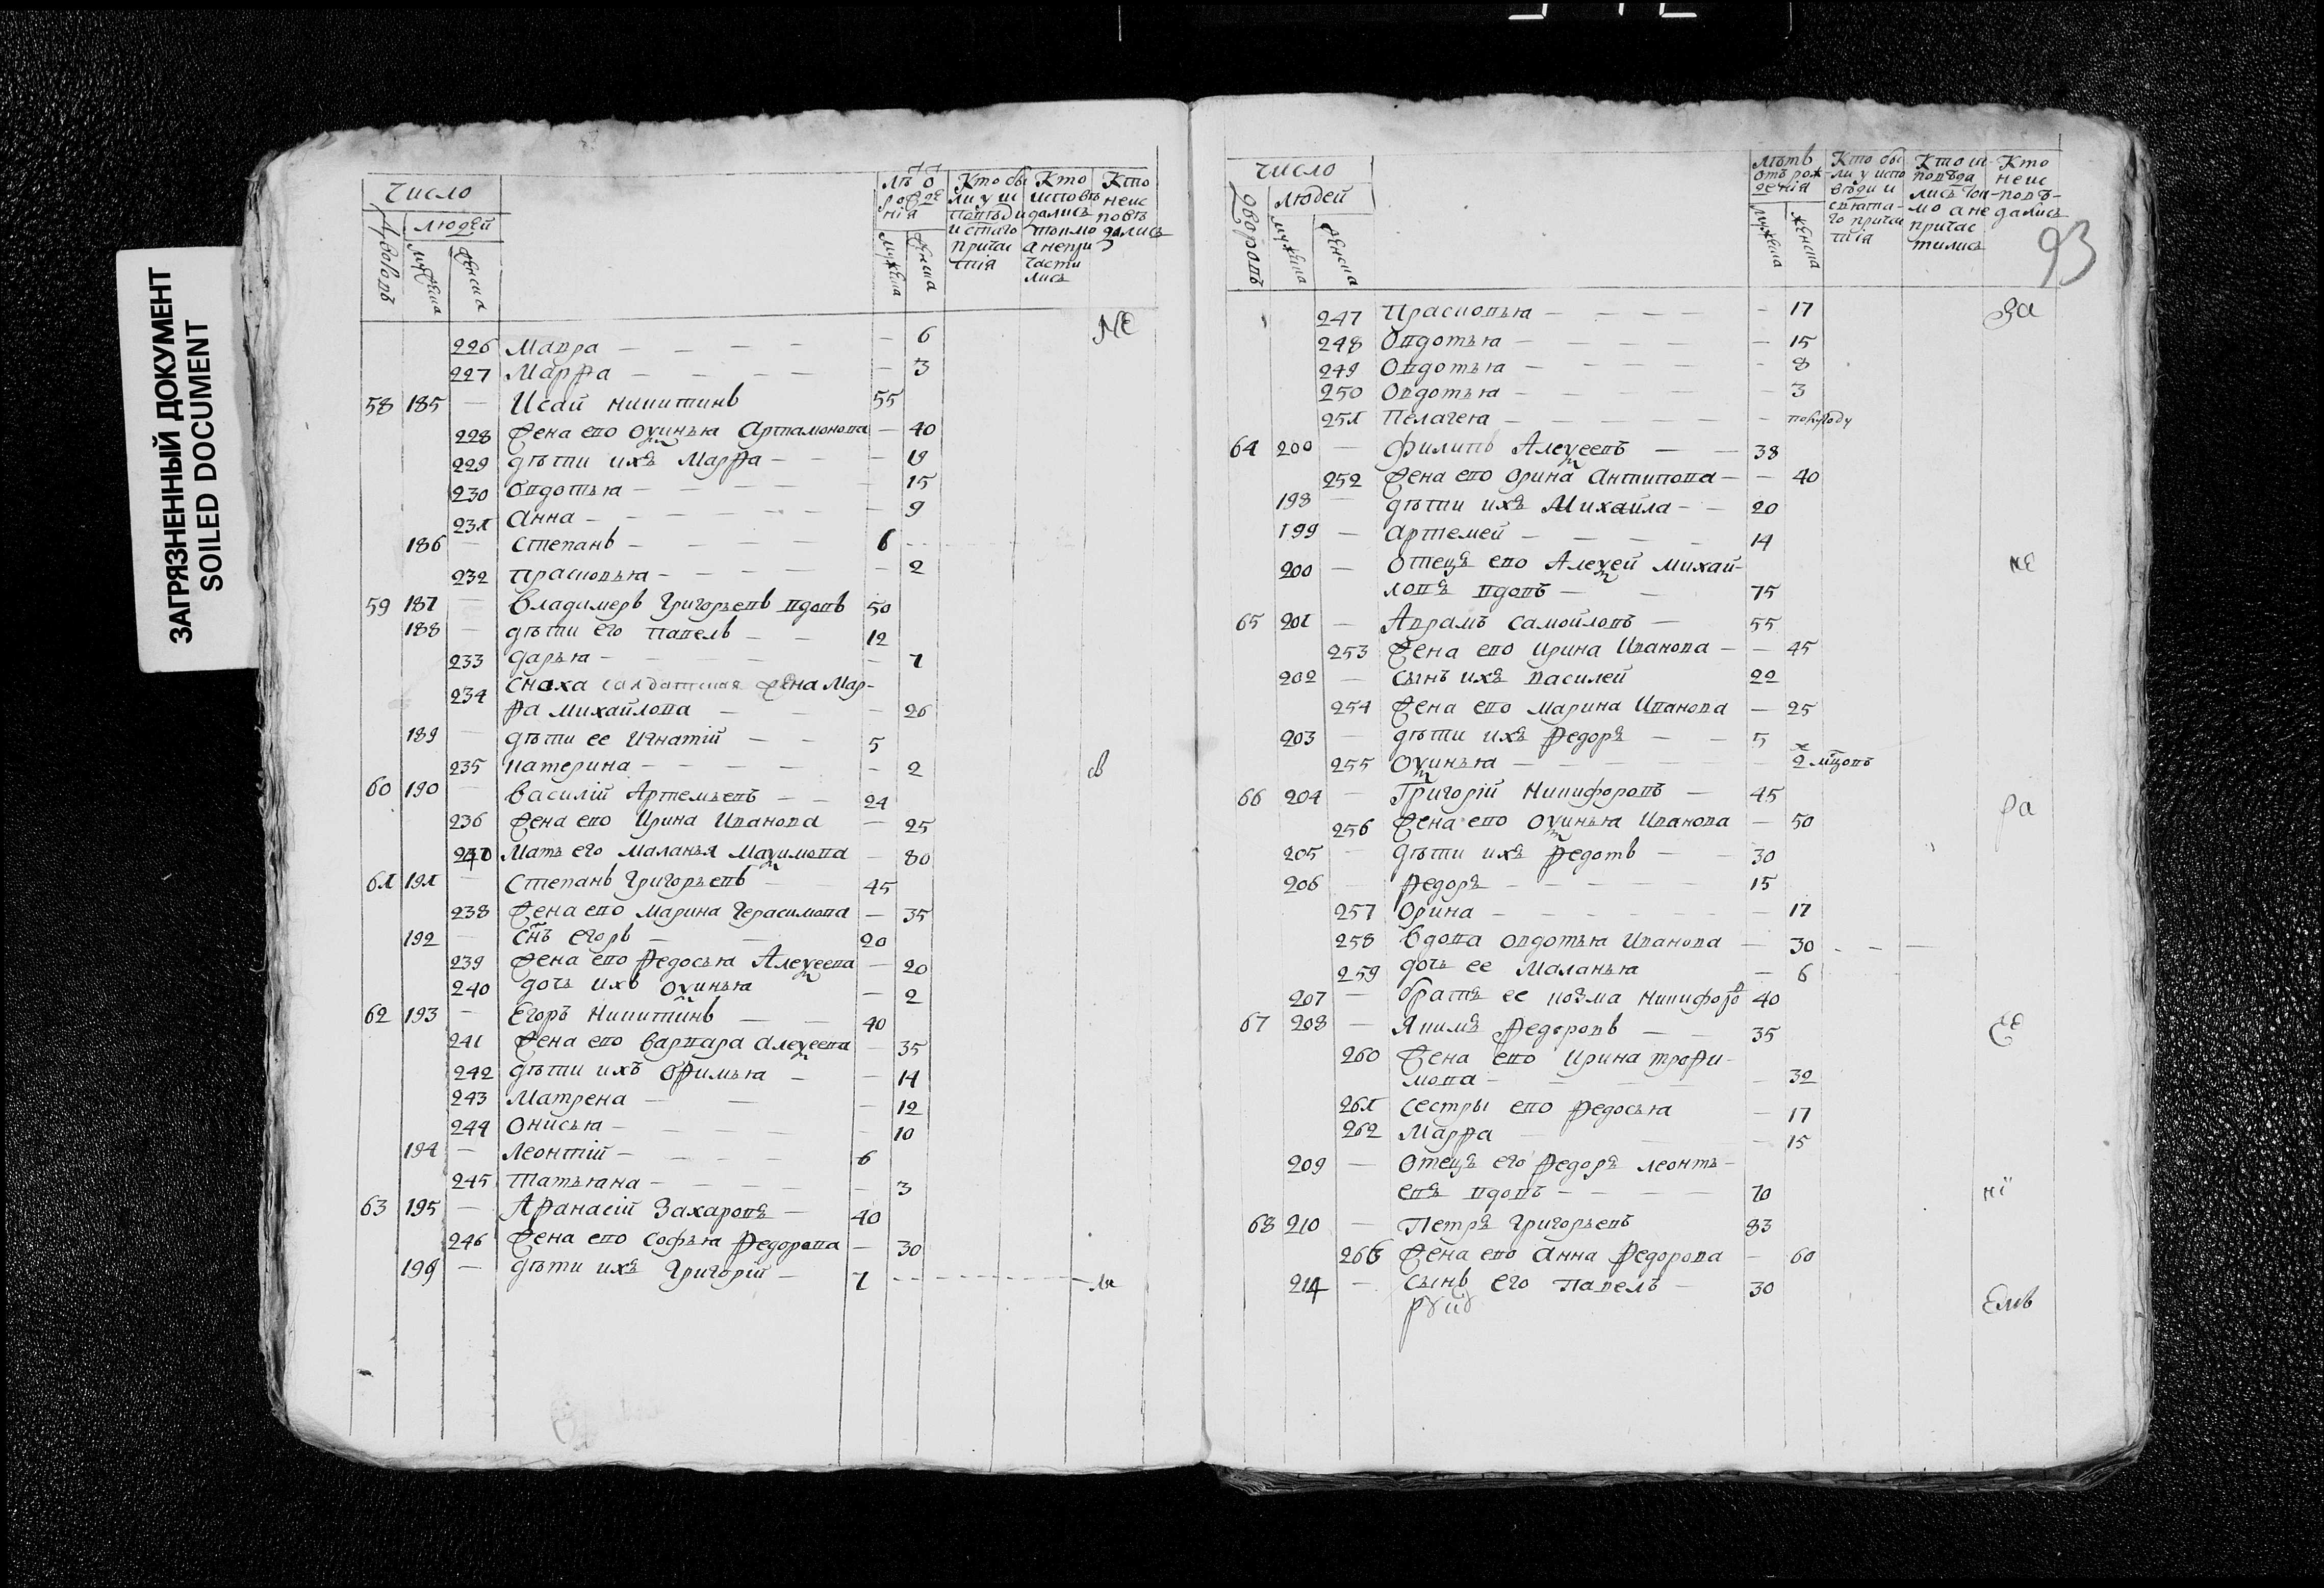 ЗАГРЯЗНЕННЫЙ ДОКУМЕНТ
SOILED DOCUMENT
число
дворовъ
людей
мужеска
женска
Кто исповѣдались токмо а непричастились
Кто неисповѣдались
226 Мавра — 6
227 Марѳа — 3
58 185 — Исай никитинъ 55
228 жена ево оѯинья Артамонова — 40
229 дѣти ихъ Марѳа — 19
230 овдотья — 15
231 Анна — 9
186 — степанъ — 6
232 прасковья — 2
59 187 — владимеръ григорьевъ вдовъ 50
188 — дѣти его павелъ — 12
233 дарья — 7
234 сноха салдатская жена Мар-
ѳа михайлова — 26
189 — дѣти ее игнатій — 5
235 катерина — 2
60 190 — василій Артемьевъ — 24
236 жена ево Ирина Иванова — 25
237 Мать его маланья Маѯимова — 80
61 191 — степанъ григорьевъ — 45
238 жена ево марина герасимова — 35
192 — снъ егоръ — 20
239 жена ево ѳедосья Алеѯеева — 20
240 дочь ихъ оѯинья — 2
62 193 — Егоръ Никитинъ — 40
241 жена ево варвара алеѯеева — 35
242 дѣти ихъ оѳимья — 14
243 матрена — 12
244 онисья — 10
194 — леонтій — 6
245 татьяна — 3
63 195 — Аѳанасій Захаровъ — 40
246 жена ево софья ѳедорова — 30
196 — дѣти ихъ григорій — 7
число
дворовъ
людей
мужеска
женска
лѣтъ отъ рождения
мужеска
женска
Кто были у исповѣди и святаго причастия
Кто исповѣдались токмо а не причастились
Кто неисповѣдались
93
247 Прасковья — 17 да
248 Овдотья — 15
249 Овдотья — 8
250 Овдотья — 3
251 Пелагея — полугоду
64 200 — филипъ Алеѯеевъ — 38
252 жена ево орина Антипова — 40
198 — дѣти ихъ Михаила — 20
199 — артемей — 14
200 — Отецъ ево Алеѯей михай-
ловъ вдовъ — 75
65 201 — Аврамъ самойловъ — 55
253 жена ево ирина Иванова — 45
202 — сынъ ихъ василей 22
254 жена ево марина Иванова — 25
203 — дѣти ихъ ѳедоръ — 5
255 Оѯинья — 2 мцовъ
66 204 — Григорій Никифоровъ — 45
256 жена ево оѯинья Иванова — 50
205 — дѣти ихъ ѳедотъ — 30
206 — ѳедоръ — 15
257 Орина — 17
258 вдова овдотья Иванова — 30
259 дочь ее Маланья — 6
207 — братъ ее козма никифоро 40
67 208 — Якимъ ѳедоровъ — 35
260 жена ево ирина троѳи-
мова — 32
261 сестры ево ѳедосья — 17
262 Марѳа — 15
209 — Отецъ его ѳедоръ леонть-
евъ вдовъ — 70
68 210 — Петръ григорьевъ 83
263 жена ево анна ѳедорова — 60
211 — сынъ его павелъ — 30